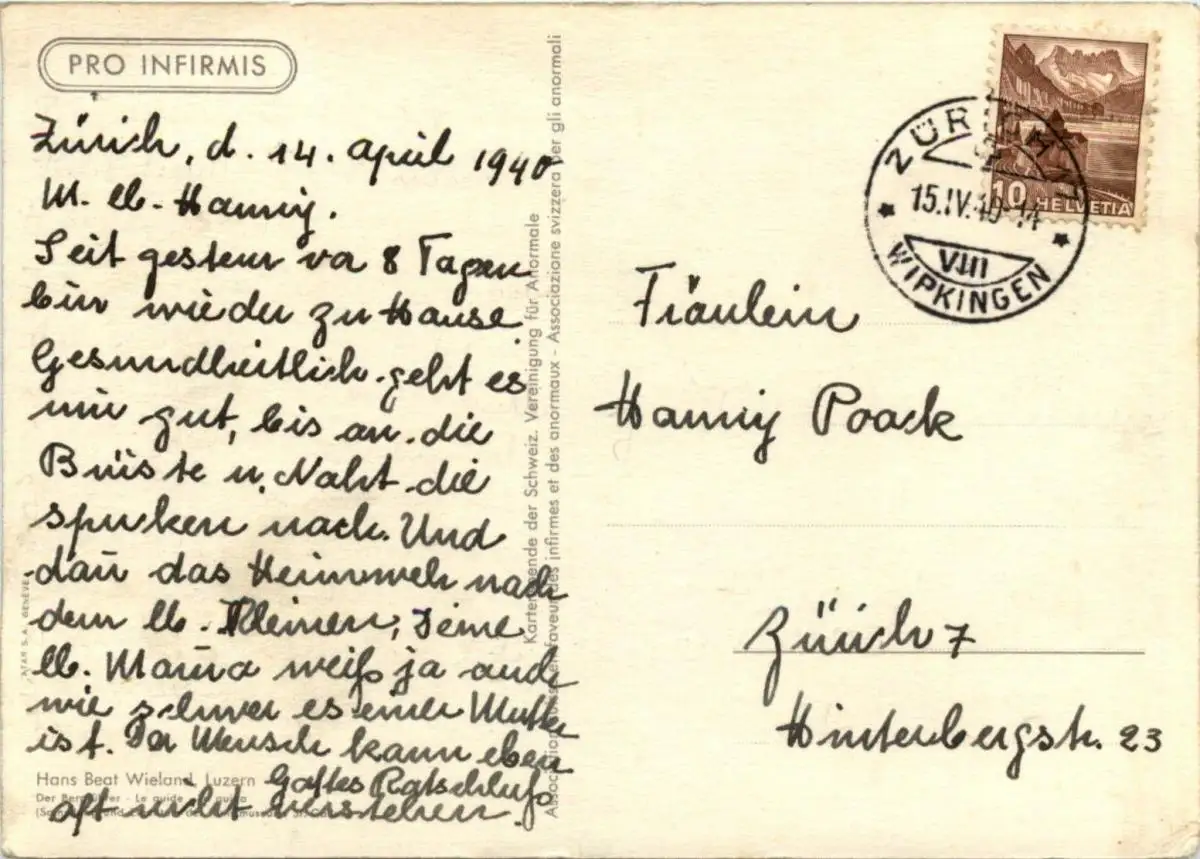 PRO INFIRMIS
Zürich, d. 14. April 1940
M. lb. Hanny.
Seit gestern vor 8 Tagen
bin wieder zu Hause.
Gesundheitlich geht es
mir gut, bis an die
Brüste u. Naht die
spucken nach. Und
dañ das Heimweh nach
dem lb. Kleinen, Deine
lb. Mama weiß ja auch
wie schwer es einer Mutter
ist. Der Mensch kann eben
Gottes Ratschluß
oft nicht verstehen.
Hans Beat Wieland, Luzern
Der Bergführer - Le guide
ATAR S.A. GENÈVE
Kartenspende der Schweiz. Vereinigung für Anormale
Association suisse en faveur des infirmes et des anormaux - Associazione svizzera per gli anormali
ZÜRICH
15.IV.40-14
VIII
WIPKINGEN
10 HELVETIA
Fräulein
Hanny Poack
Zürich 7
Hinterbergstr. 23